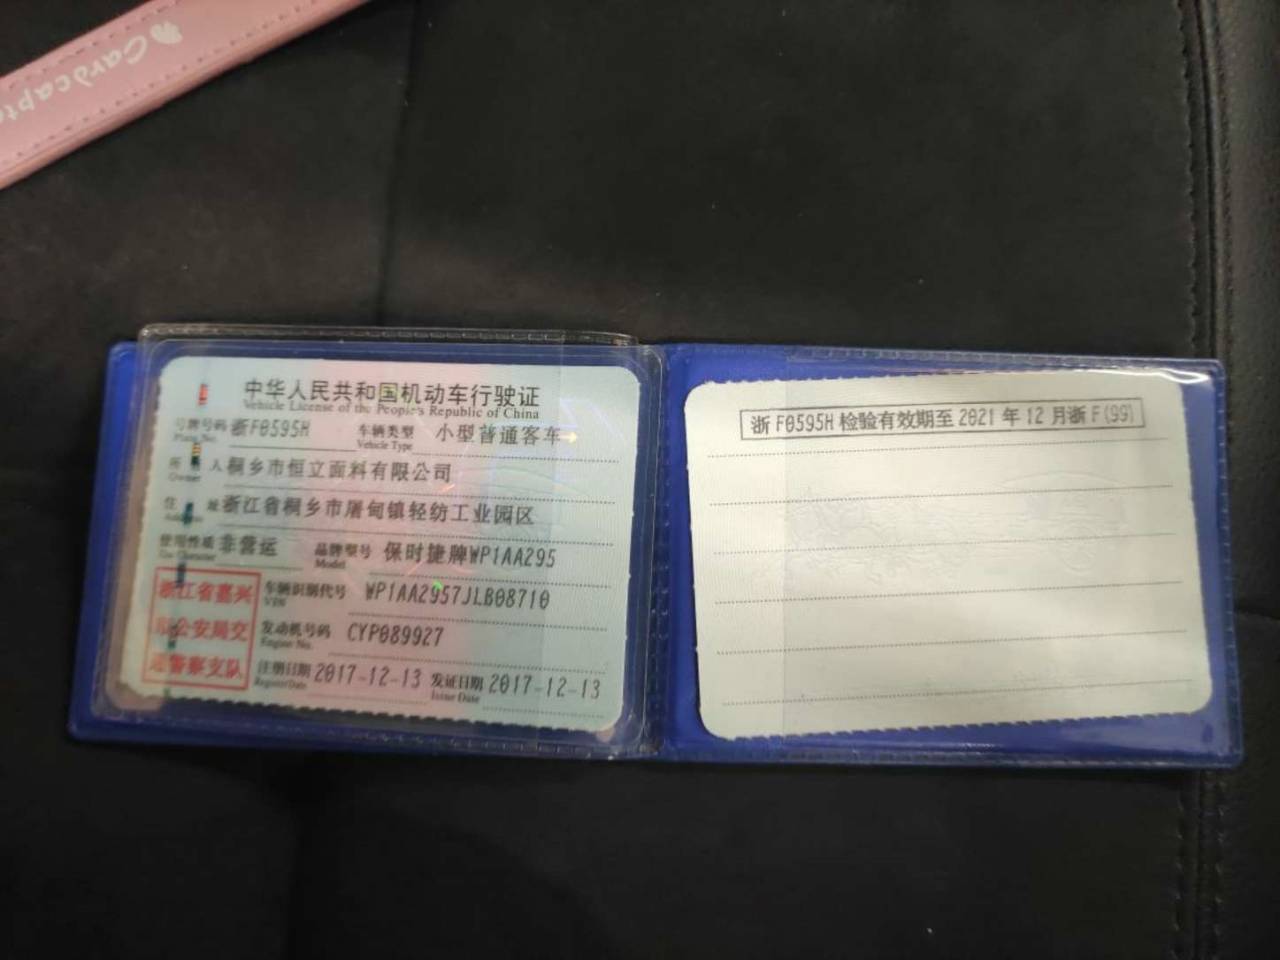 Cardcapto
中华人民共和国机动车行驶证
Vehicle License of the People's Republic of China
号牌号码 浙F0595H 车辆类型 小型普通客车
Plate No. Vehicle Type
所 人 桐乡市恒立面料有限公司
Owner
住 址 浙江省桐乡市屠甸镇轻纺工业园区
Address
使用性质 非营运 品牌型号 保时捷牌WP1AA295
Use Character Model
浙江省嘉兴
公安局交
通警察支队
车辆识别代号 WP1AA2957JLB08710
VIN
发动机号码 CYP089927
Engine No.
注册日期 2017-12-13 发证日期 2017-12-13
Register Date Issue Date
浙F0595H 检验有效期至 2021 年 12 月浙 F(99)